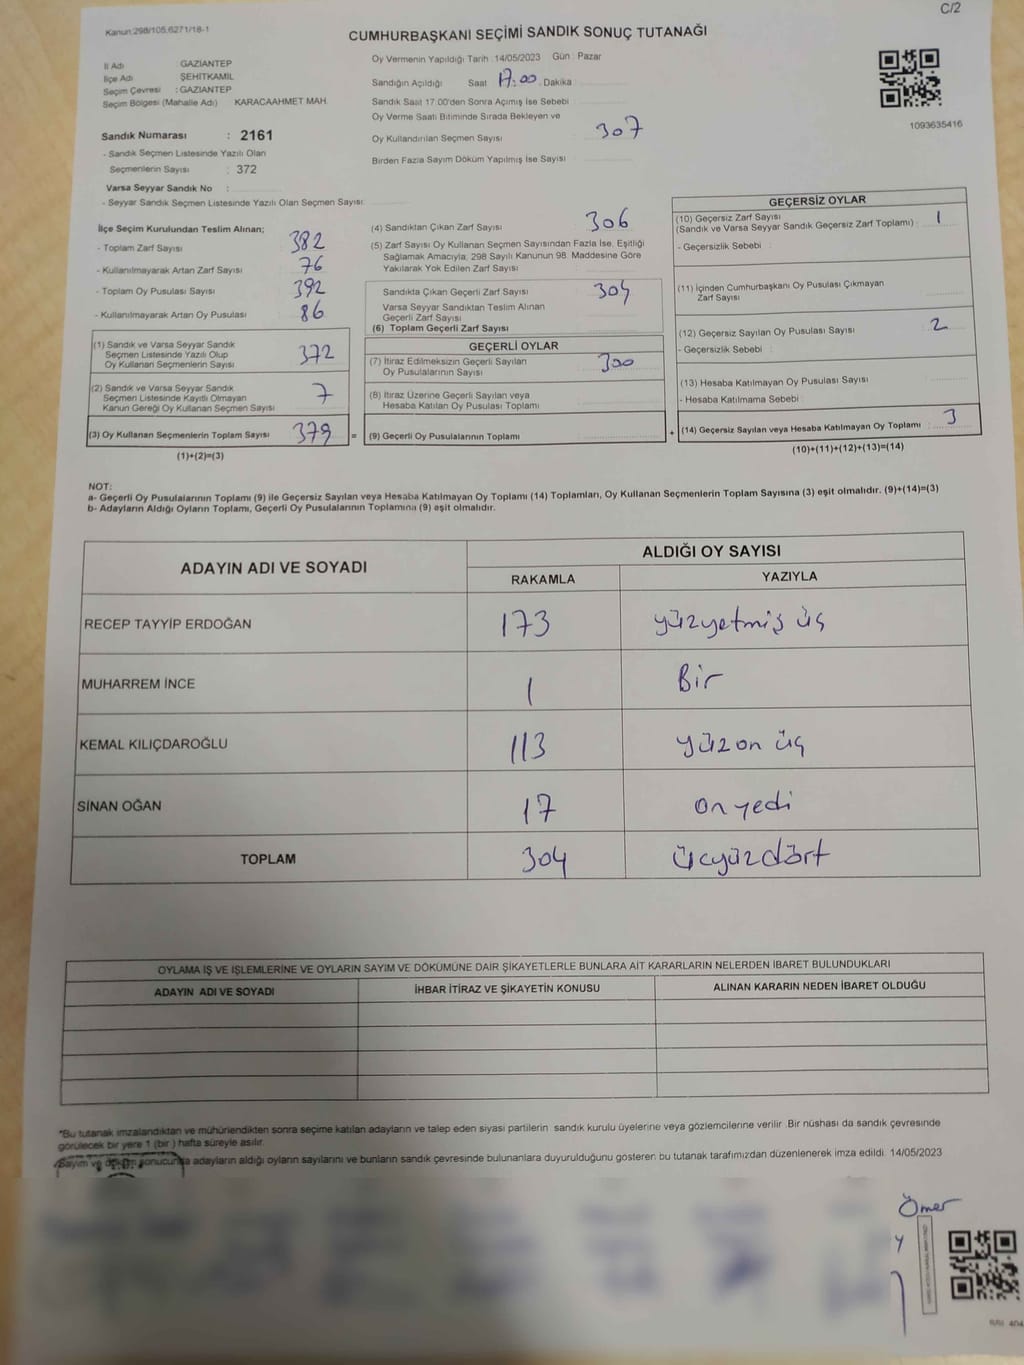 C/2
Kanun:298/105,6271/18-1
CUMHURBAŞKANI SEÇİMİ SANDIK SONUÇ TUTANAĞI
İl Adı GAZİANTEP
İlçe Adı ŞEHİTKAMİL
Seçim Çevresi : GAZİANTEP
Seçim Bölgesi (Mahalle Adı) KARACAAHMET MAH.
Oy Vermenin Yapıldığı Tarih : 14/05/2023 Gün : Pazar
Sandığın Açıldığı Saat 17:00 Dakika
Sandık Saat 17:00'den Sonra Açımış İse Sebebi
Oy Verme Saati Bitiminde Sırada Bekleyen ve
Oy Kullandırılan Seçmen Sayısı 307
Birden Fazla Sayım Döküm Yapılmış İse Sayısı
1093635416
Sandık Numarası : 2161
- Sandık Seçmen Listesinde Yazılı Olan
Seçmenlerin Sayısı : 372
Varsa Seyyar Sandık No :
- Seyyar Sandık Seçmen Listesinde Yazılı Olan Seçmen Sayısı:
İlçe Seçim Kurulundan Teslim Alınan;
- Toplam Zarf Sayısı 382
- Kullanılmayarak Artan Zarf Sayısı 76
- Toplam Oy Pusulası Sayısı 392
- Kullanılmayarak Artan Oy Pusulası 86
(1) Sandık ve Varsa Seyyar Sandık
Seçmen Listesinde Yazılı Olup
Oy Kullanan Seçmenlerin Sayısı 372
(2) Sandık ve Varsa Seyyar Sandık
Seçmen Listesinde Kayıtlı Olmayan
Kanun Gereği Oy Kullanan Seçmen Sayısı 7
(3) Oy Kullanan Seçmenlerin Toplam Sayısı 379 =
(1)+(2)=(3)
(4) Sandıktan Çıkan Zarf Sayısı 306
(5) Zarf Sayısı Oy Kullanan Seçmen Sayısından Fazla İse, Eşitliği
Sağlamak Amacıyla, 298 Sayılı Kanunun 98. Maddesine Göre
Yakılarak Yok Edilen Zarf Sayısı
Sandıkta Çıkan Geçerli Zarf Sayısı 304
Varsa Seyyar Sandıktan Teslim Alınan
Geçerli Zarf Sayısı
(6) Toplam Geçerli Zarf Sayısı
GEÇERLİ OYLAR
(7) İtiraz Edilmeksizin Geçerli Sayılan
Oy Pusulalarının Sayısı 300
(8) İtiraz Üzerine Geçerli Sayılan veya
Hesaba Katılan Oy Pusulası Toplamı
(9) Geçerli Oy Pusulalarının Toplamı +
GEÇERSİZ OYLAR
(10) Geçersiz Zarf Sayısı 1
(Sandık ve Varsa Seyyar Sandık Geçersiz Zarf Toplamı) :
- Geçersizlik Sebebi :
(11) İçinden Cumhurbaşkanı Oy Pusulası Çıkmayan
Zarf Sayısı
(12) Geçersiz Sayılan Oy Pusulası Sayısı 2
- Geçersizlik Sebebi :
(13) Hesaba Katılmayan Oy Pusulası Sayısı
- Hesaba Katılmama Sebebi :
(14) Geçersiz Sayılan veya Hesaba Katılmayan Oy Toplamı : 3
(10)+(11)+(12)+(13)=(14)
NOT:
a- Geçerli Oy Pusulalarının Toplamı (9) ile Geçersiz Sayılan veya Hesaba Katılmayan Oy Toplamı (14) Toplamları, Oy Kullanan Seçmenlerin Toplam Sayısına (3) eşit olmalıdır. (9)+(14)=(3)
b- Adayların Aldığı Oyların Toplamı, Geçerli Oy Pusulalarının Toplamına (9) eşit olmalıdır.
ADAYIN ADI VE SOYADI ALDIĞI OY SAYISI
RAKAMLA YAZIYLA
RECEP TAYYİP ERDOĞAN 173 yüzyetmiş üç
MUHARREM İNCE 1 Bir
KEMAL KILIÇDAROĞLU 113 yüz on üç
SİNAN OĞAN 17 on yedi
TOPLAM 304 üçyüzdört
OYLAMA İŞ VE İŞLEMLERİNE VE OYLARIN SAYIM VE DÖKÜMÜNE DAİR ŞİKAYETLERLE BUNLARA AİT KARARLARIN NELERDEN İBARET BULUNDUKLARI
ADAYIN ADI VE SOYADI İHBAR İTİRAZ VE ŞİKAYETİN KONUSU ALINAN KARARIN NEDEN İBARET OLDUĞU
*Bu tutanak imzalandıktan ve mühürlendikten sonra seçime katılan adayların ve talep eden siyasi partilerin sandık kurulu üyelerine veya gözlemcilerine verilir. Bir nüshası da sandık çevresinde
görülecek bir yere 1 (bir) hafta süreyle asılır.
Sayım ve döküm sonucunda adayların aldığı oyların sayılarını ve bunların sandık çevresinde bulunanlara duyurulduğunu gösteren bu tutanak tarafımızdan düzenlenerek imza edildi. 14/05/2023
Ömer